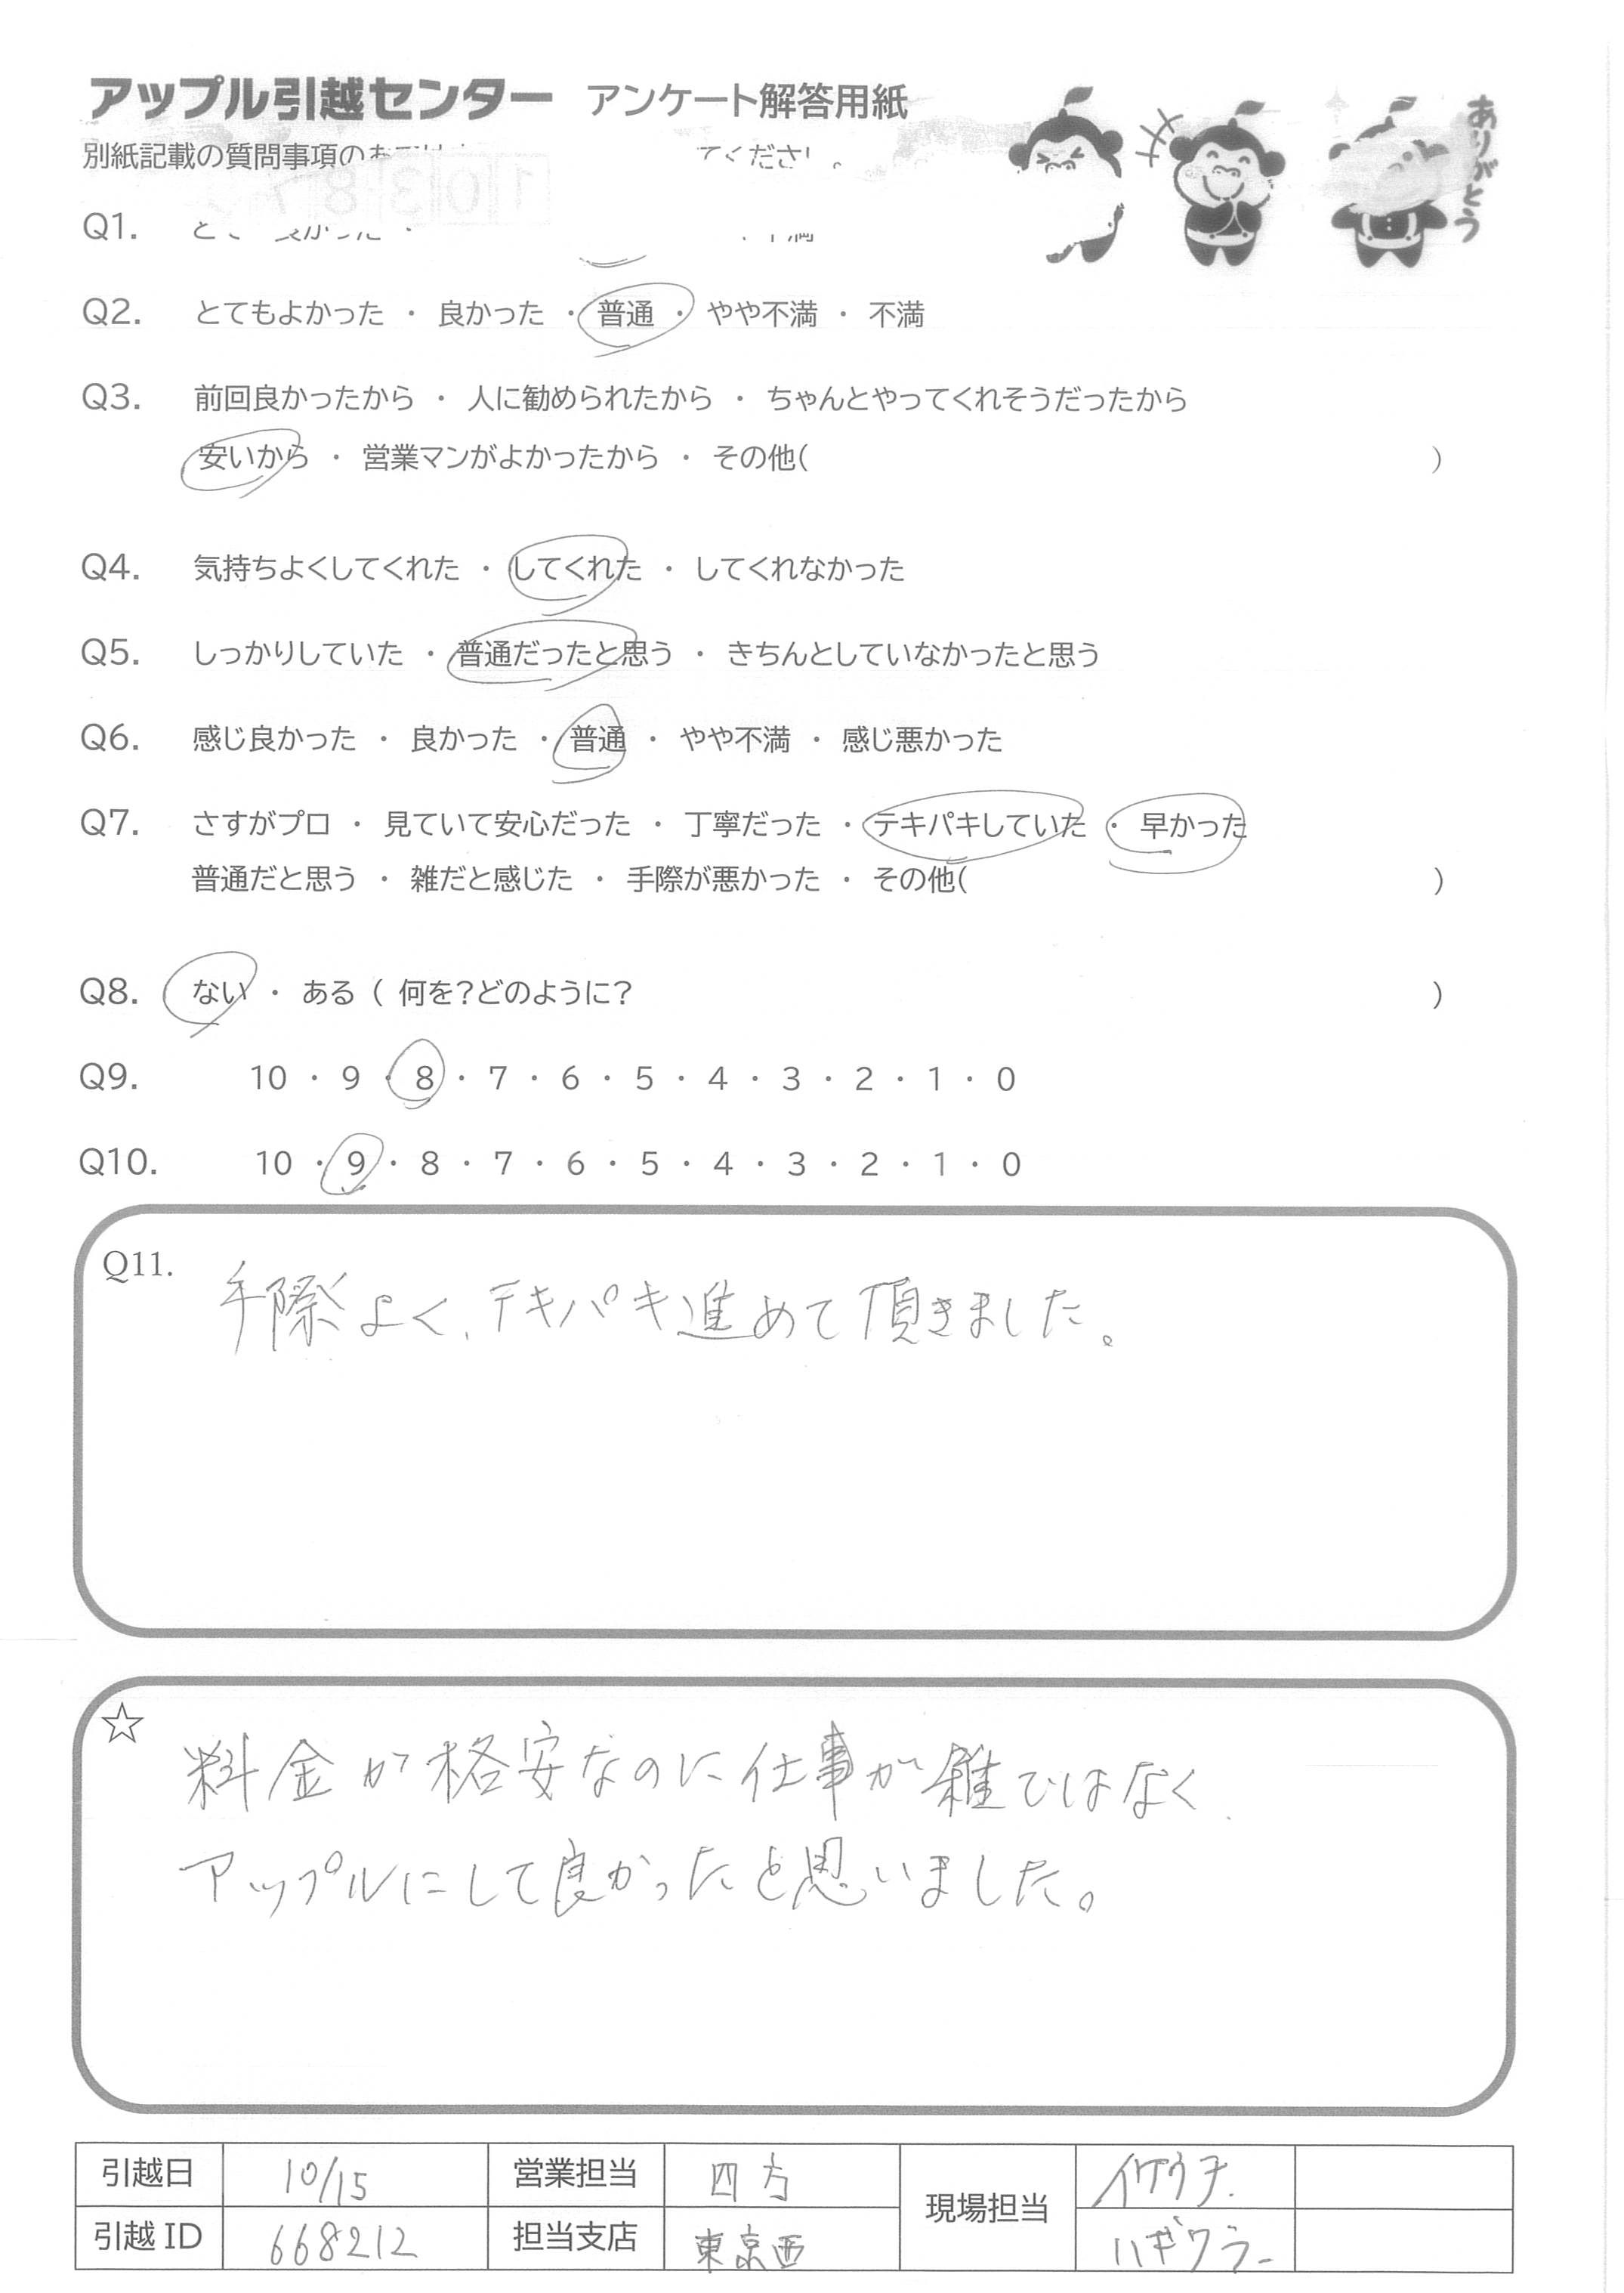 アップル引越センター アンケート解答用紙
別紙記載の質問事項の
ありがとう
Q1.
Q2. とてもよかった ・ 良かった ・ 普通 ・ やや不満 ・ 不満
Q3. 前回良かったから ・ 人に勧められたから ・ ちゃんとやってくれそうだったから
安いから ・ 営業マンがよかったから ・ その他( )
Q4. 気持ちよくしてくれた ・ してくれた ・ してくれなかった
Q5. しっかりしていた ・ 普通だったと思う ・ きちんとしていなかったと思う
Q6. 感じ良かった ・ 良かった ・ 普通 ・ やや不満 ・ 感じ悪かった
Q7. さすがプロ ・ 見ていて安心だった ・ 丁寧だった ・ テキパキしていた ・ 早かった
普通だと思う ・ 雑だと感じた ・ 手際が悪かった ・ その他( )
Q8. ない ・ ある ( 何を?どのように? )
Q9. 10 ・ 9 ・ 8 ・ 7 ・ 6 ・ 5 ・ 4 ・ 3 ・ 2 ・ 1 ・ 0
Q10. 10 ・ 9 ・ 8 ・ 7 ・ 6 ・ 5 ・ 4 ・ 3 ・ 2 ・ 1 ・ 0
Q11. 手際よく、テキパキ進めて頂きました。
☆ 料金が格安なのに仕事が雑ではなく、
アップルにして良かったと思いました。
引越日 10/15 営業担当 四方 現場担当 イケウチ
引越ID 668212 担当支店 東京西 ハギワラ